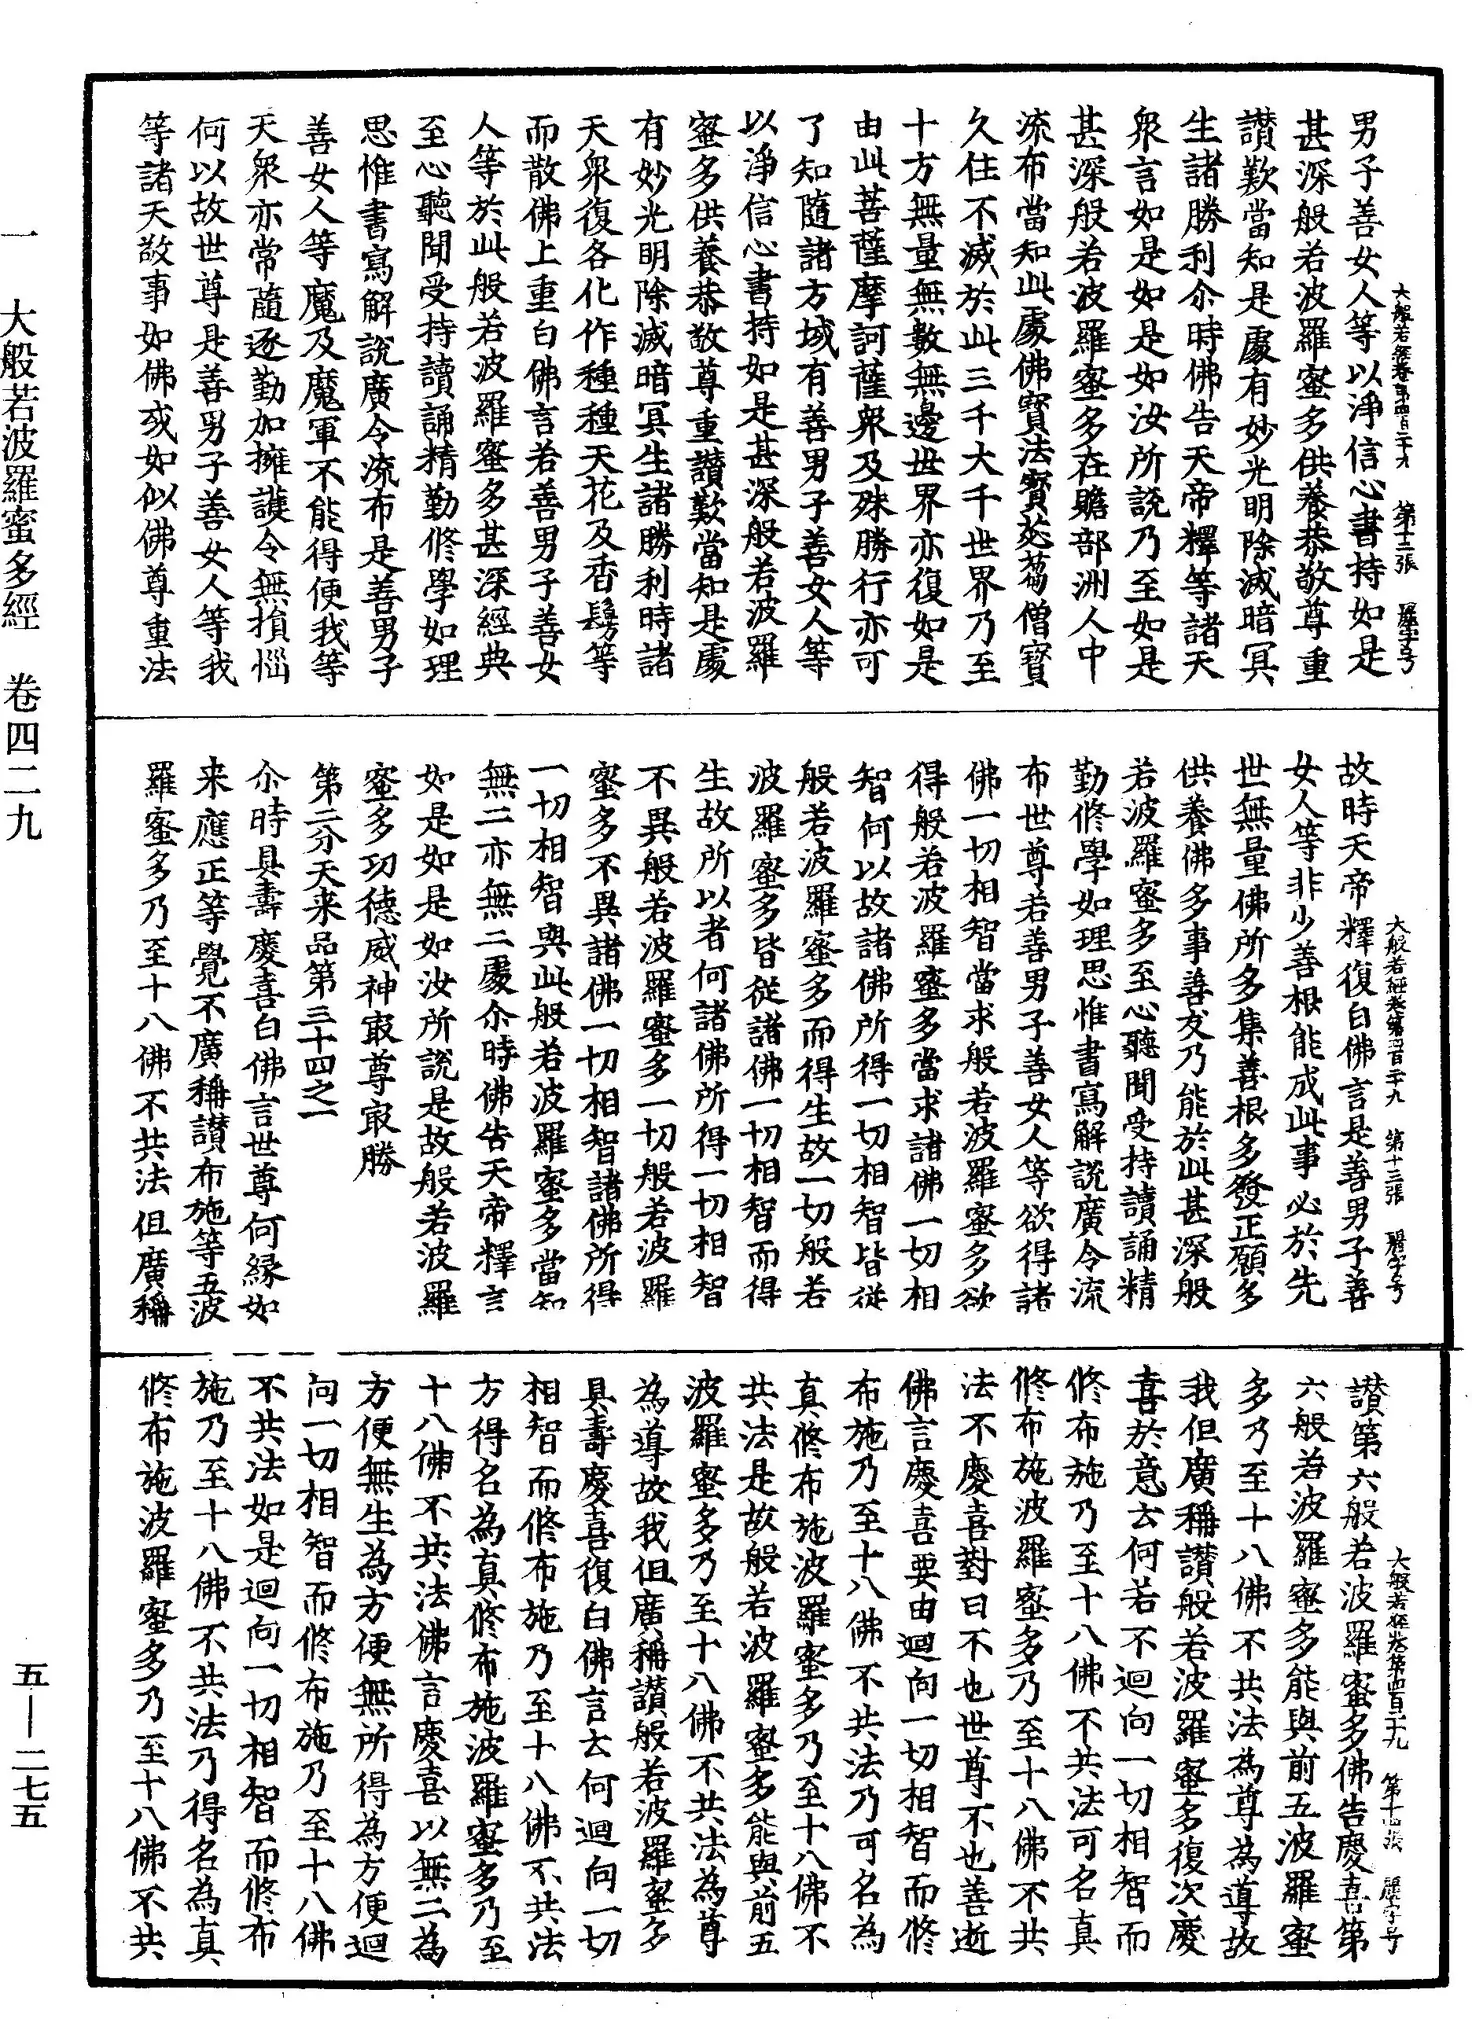 大般若經卷第四百二十九　第十二張
男子善女人等以淨信心書持如是
甚深般若波羅蜜多供養恭敬尊重
讃歎當知是處有妙光明除滅暗冥
生諸勝利尒時佛告天帝釋等諸天
衆言如是如是如汝所說乃至如是
甚深般若波羅蜜多在贍部洲人中
流布當知此處佛寶法寶苾蒭僧寶
久住不滅於此三千大千世界乃至
十方無量無數無邊世界亦復如是
由此菩薩摩訶薩衆及殊勝行亦可
了知隨諸方域有善男子善女人等
以淨信心書持如是甚深般若波羅
蜜多供養恭敬尊重讃歎當知是處
有妙光明除滅暗冥生諸勝利時諸
天衆復各化作種種天花及香鬘等
而散佛上重白佛言若善男子善女
人等於此般若波羅蜜多甚深經典
至心聽聞受持讀誦精勤修學如理
思惟書寫解說廣令流布是善男子
善女人等魔及魔軍不能得便我等
天衆亦常隨逐勤加擁護令無損惱
何以故世尊是善男子善女人等我
等諸天敬事如佛或如似佛尊重法
大般若經卷第四百二十九　第十三張
故時天帝釋復白佛言是善男子善
女人等非少善根能成此事必於先
世無量佛所多集善根多發正願多
供養佛多事善友乃能於此甚深般
若波羅蜜多至心聽聞受持讀誦精
勤修學如理思惟書寫解說廣令流
布世尊若善男子善女人等欲得諸
佛一切相智當求般若波羅蜜多欲
得般若波羅蜜多當求諸佛一切相
智何以故諸佛所得一切相智皆從
般若波羅蜜多而得生故一切般若
波羅蜜多皆從諸佛一切相智而得
生故所以者何諸佛所得一切相智
不異般若波羅蜜多一切般若波羅
蜜多不異諸佛一切相智諸佛所得
一切相智與此般若波羅蜜多當知
無二亦無二處尒時佛告天帝釋言
如是如是如汝所說是故般若波羅
蜜多功德威神㝡尊㝡勝
第二分天来品第三十四之一
尒時具壽慶喜白佛言世尊何縁如
来應正等覺不廣稱讃布施等五波
羅蜜多乃至十八佛不共法但廣稱
大般若經卷第四百二十九　第十四張
讃第六般若波羅蜜多佛告慶喜第
六般若波羅蜜多能與前五波羅蜜
多乃至十八佛不共法為尊為導故
我但廣稱讃般若波羅蜜多復次慶
喜於意云何若不迴向一切相智而
修布施乃至十八佛不共法可名真
修布施波羅蜜多乃至十八佛不共
法不慶喜對曰不也世尊不也善逝
佛言慶喜要由迴向一切相智而修
布施乃至十八佛不共法乃可名為
真修布施波羅蜜多乃至十八佛不
共法是故般若波羅蜜多能與前五
波羅蜜多乃至十八佛不共法為尊
為導故我但廣稱讃般若波羅蜜多
具壽慶喜復白佛言云何迴向一切
相智而修布施乃至十八佛不共法
方得名為真修布施波羅蜜多乃至
十八佛不共法佛言慶喜以無二為
方便無生為方便無所得為方便迴
向一切相智而修布施乃至十八佛
不共法如是迴向一切相智而修布
施乃至十八佛不共法乃得名為真
修布施波羅蜜多乃至十八佛不共
一　大般若波羅蜜多經　卷四二九
五—二七五